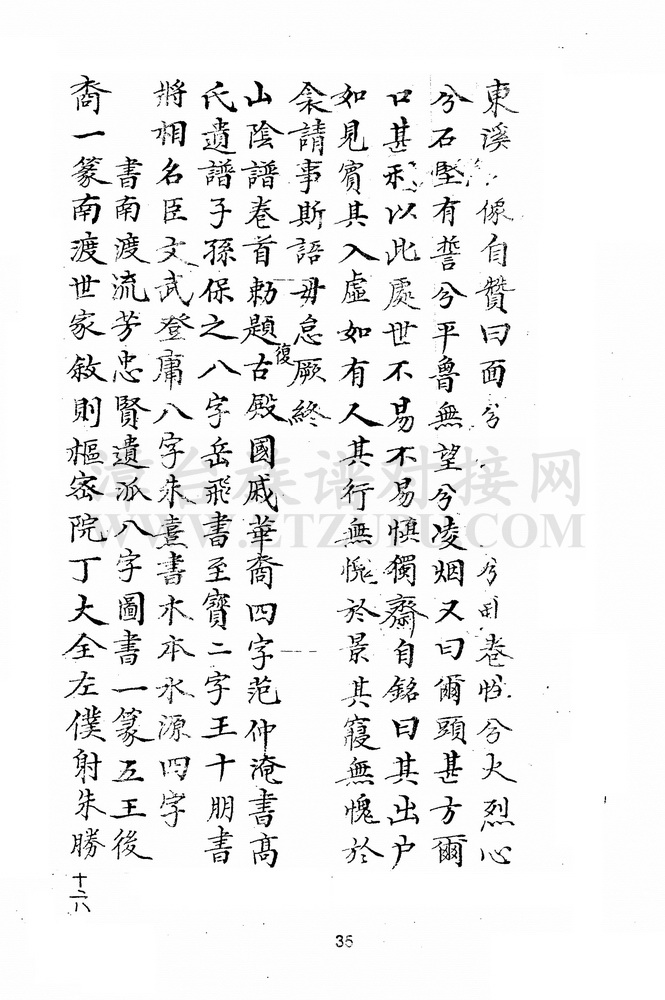 東溪 像自贊曰面兮 兮 卷 兮火烈心
兮石堅有誓兮平魯無望兮凌烟又曰爾頭甚方爾
口甚 以此處世不易不易慎獨齋自銘曰其出户
如見賓其入虛如有人其行無愧於景其寢無愧於
衾請事斯語毋怠厥終
山陰譜卷首勅題古殿國戚華裔四字范仲淹書高
復
氏遺譜子孫保之八字岳飛書至寶二字王十朋書
將相名臣文武登庸八字朱熹書木本水源四字
書南渡流芳忠賢遺派八字圖書一篆五王後
裔一篆南渡世家敘則樞密院丁大全左僕射朱勝
十六
漳台族谱对接网
WWW.ZTZUPU.COM
36